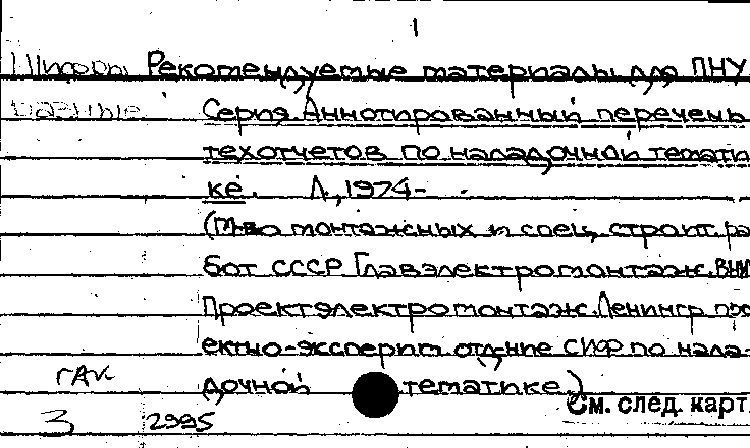 1
Шифры Рекомендуемые материалы для ПНУ
разные Серия. Аннотированный перечень
техотчетов по наладочной темати-
ке. Л., 1974-
(М-во монтажных и спец. строит. ра-
бот СССР. Главэлектромонтаж. ВНИИ
Проектэлектромонтаж. Ленингр. про-
ектно-эксперим. отд-ние СИФ по нала-
ГАК дочной тематике.)
См. след. карт.
3 2995